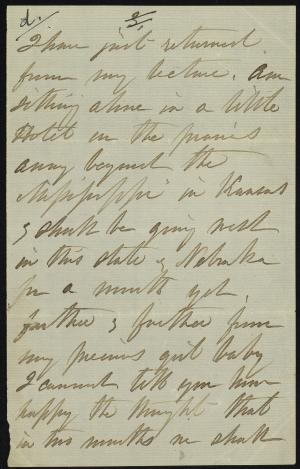 d.
I have just returned
from my lecture. am
sitting alone in a little
Hotel on the prairies
away beyond the
Mississippi in Kansas
& shall be going west
in this state & Nebraska
for a month yet.
farther & farther from
my precious girl baby
I cannot tell you how
happy the thought that
in two months we shall